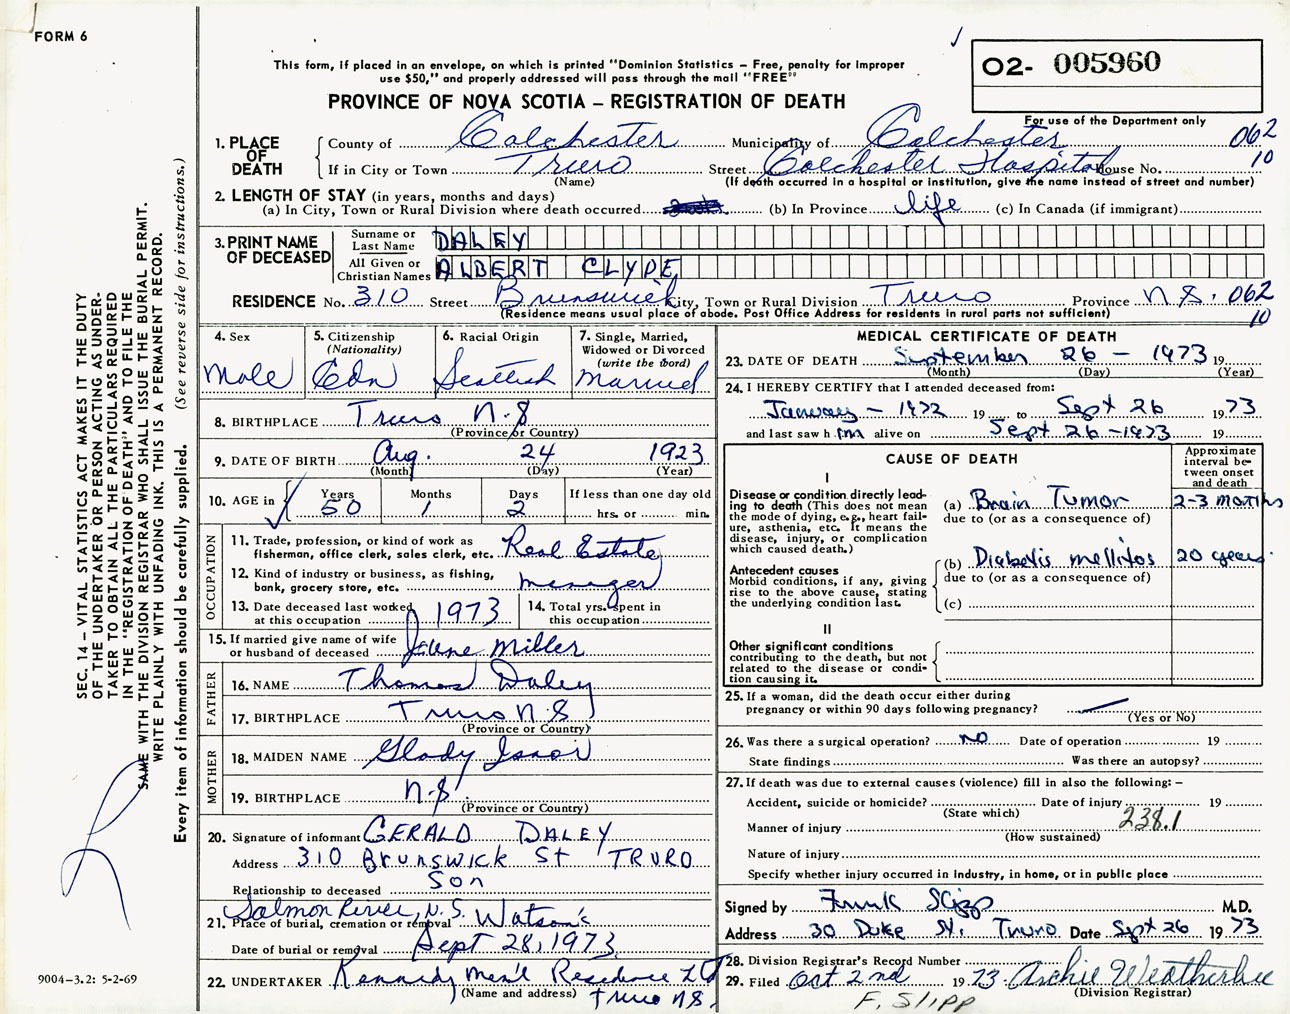 FORM 6
This form, if placed in an envelope, on which is printed "Dominion Statistics – Free, penalty for improper
use $50," and properly addressed will pass through the mail "FREE"
PROVINCE OF NOVA SCOTIA – REGISTRATION OF DEATH
O2- 005960
For use of the Department only
1. PLACE OF DEATH
County of Colchester Municipality of Colchester 062
If in City or Town Truro Street Colchester Hospital House No. 10
(Name) (If death occurred in a hospital or institution, give the name instead of street and number)
2. LENGTH OF STAY (in years, months and days)
(a) In City, Town or Rural Division where death occurred (b) In Province life (c) In Canada (if immigrant)
3. PRINT NAME OF DECEASED
Surname or Last Name DALEY
All Given or Christian Names ALBERT CLYDE
RESIDENCE No. 310 Street Brunswick City, Town or Rural Division Truro Province N.S. 062
(Residence means usual place of abode. Post Office Address for residents in rural parts not sufficient) 10
4. Sex
Male
5. Citizenship
(Nationality)
Cdn
6. Racial Origin
Scottish
7. Single, Married,
Widowed or Divorced
(write the word)
Married
8. BIRTHPLACE Truro N.S
(Province or Country)
9. DATE OF BIRTH Aug. 24 1923
(Month) (Day) (Year)
10. AGE in
Years Months Days If less than one day old
50 1 2 hrs. or min.
OCCUPATION
11. Trade, profession, or kind of work as
fisherman, office clerk, sales clerk, etc. Real Estate
12. Kind of industry or business, as fishing,
bank, grocery store, etc. Maneger
13. Date deceased last worked
at this occupation 1973
14. Total yrs. spent in
this occupation
15. If married give name of wife
or husband of deceased Miller
FATHER
16. NAME Thomas Daley
17. BIRTHPLACE Truro N.S
(Province or Country)
MOTHER
18. MAIDEN NAME Glady
19. BIRTHPLACE N.S.
(Province or Country)
20. Signature of informant GERALD DALEY
Address 310 Brunswick St TRURO
Relationship to deceased Son
Salmon River, N.S. Watson's
21. Place of burial, cremation or removal
Date of burial or removal Sept 28, 1973
22. UNDERTAKER Kennedy Men'l Residence LTD
(Name and address) Truro N.S.
MEDICAL CERTIFICATE OF DEATH
23. DATE OF DEATH September 26 – 1973 19
(Month) (Day) (Year)
24. I HEREBY CERTIFY that I attended deceased from:
January – 1972 19 to Sept 26 1973
and last saw h im alive on Sept 26 -1973 19
CAUSE OF DEATH
Approximate
interval be-
tween onset
and death
I
Disease or condition directly lead-
ing to death (This does not mean
the mode of dying, e.g., heart fail-
ure, asthenia, etc. It means the
disease, injury, or complication
which caused death.)
(a) Brain Tumor 2-3 months
due to (or as a consequence of)
Antecedent causes
Morbid conditions, if any, giving
rise to the above cause, stating
the underlying condition last.
(b) Diabetis mellitos 20 years.
due to (or as a consequence of)
(c)
II
Other significant conditions
contributing to the death, but not
related to the disease or condi-
tion causing it.
25. If a woman, did the death occur either during
pregnancy or within 90 days following pregnancy?
(Yes or No)
26. Was there a surgical operation? NO Date of operation 19
State findings Was there an autopsy?
27. If death was due to external causes (violence) fill in also the following: –
Accident, suicide or homicide? Date of injury 19
(State which)
238.1
Manner of injury
(How sustained)
Nature of injury
Specify whether injury occurred in industry, in home, or in public place
Signed by Frank Slipp M.D.
Address 30 Duke St. Truro Date Sept 26 1973
28. Division Registrar's Record Number
29. Filed Oct 2nd 1973 Archie Weatherbee
(Division Registrar)
F. SLIPP
SEC. 14 – VITAL STATISTICS ACT MAKES IT THE DUTY
OF THE UNDERTAKER OR PERSON ACTING AS UNDER-
TAKER TO OBTAIN ALL THE PARTICULARS REQUIRED
IN THE "REGISTRATION OF DEATH" AND TO FILE THE
SAME WITH THE DIVISION REGISTRAR WHO SHALL ISSUE THE BURIAL PERMIT.
WRITE PLAINLY WITH UNFADING INK. THIS IS A PERMANENT RECORD.
Every item of information should be carefully supplied. (See reverse side for instructions.)
9004–3.2: 5-2-69